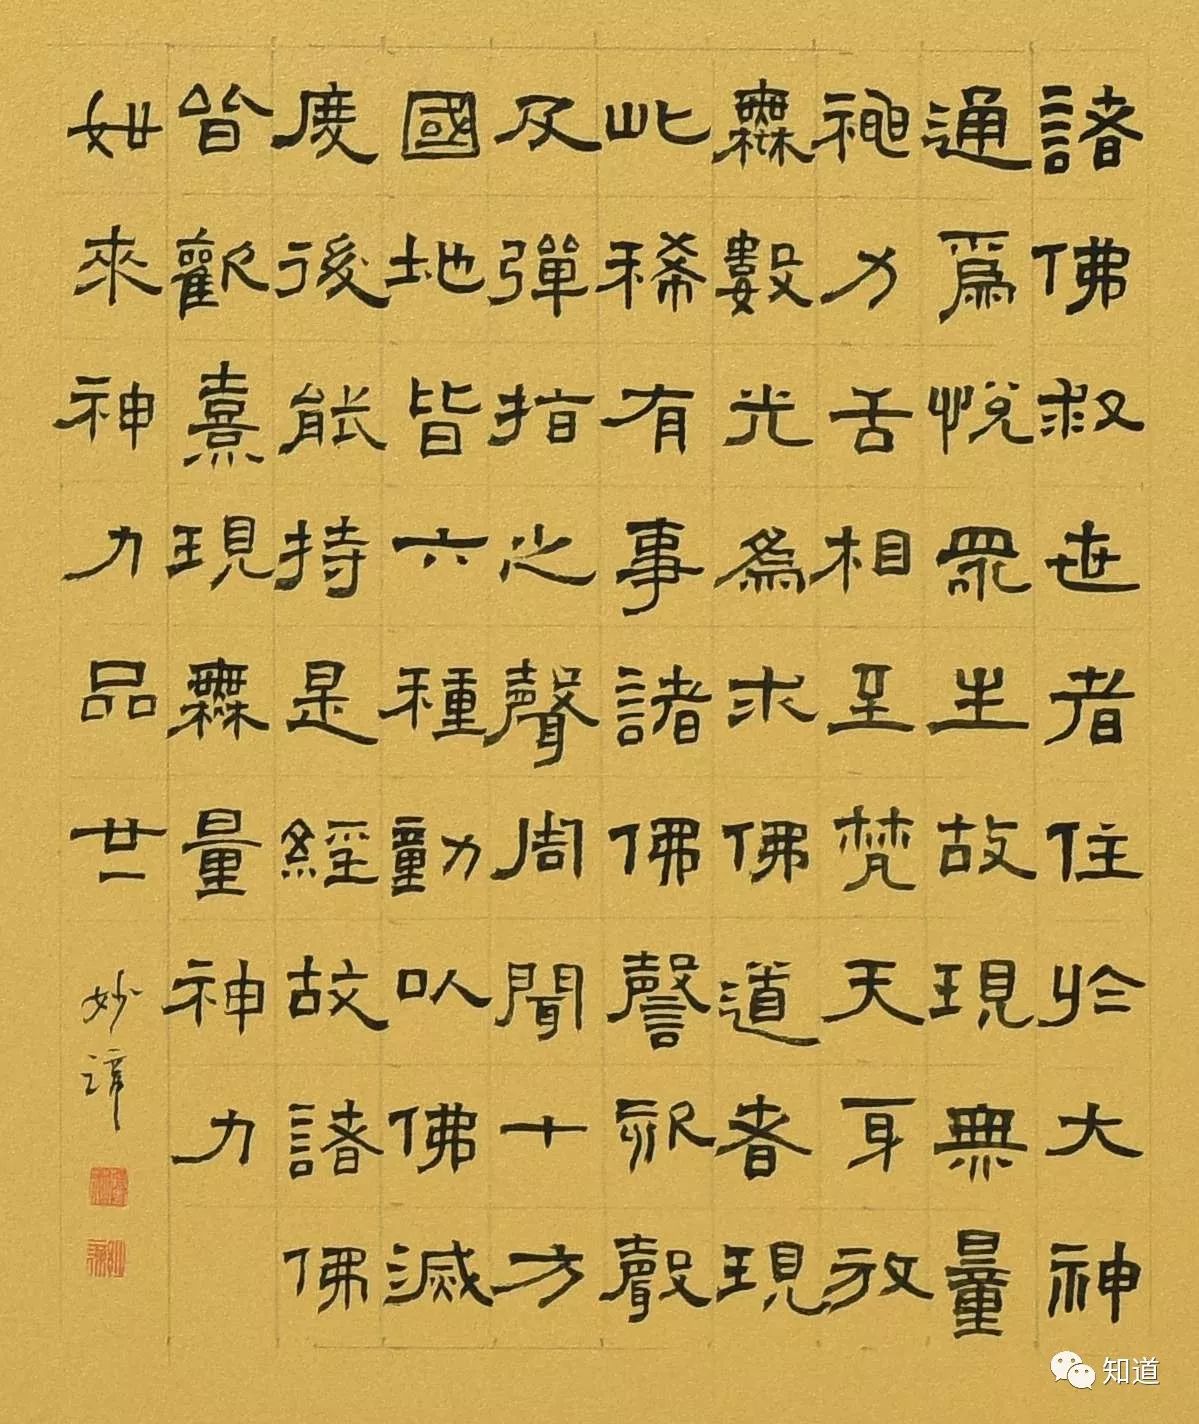 諸佛救世者住於大神
通為悅眾生故現無量
神力舌相至梵天身放
無數光為求佛道者現
此稀有事諸佛謦欬聲
及彈指之聲周聞十方
國地皆六種動以佛滅
度後能持是經故諸佛
皆歡喜現無量神力
如來神力品廿一
妙諦
知道